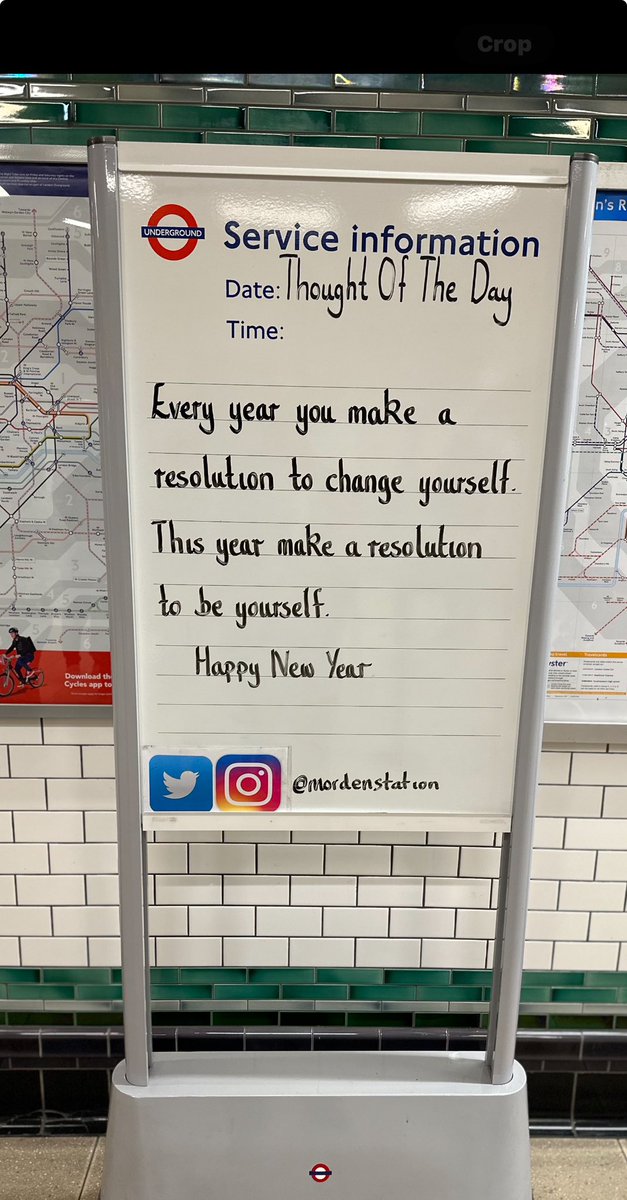 Crop
UNDERGROUND
Service information
Date: Thought Of The Day
Time:
Every year you make a
resolution to change yourself.
This year make a resolution
to be yourself.
Happy New Year
@mordenstation
Download the
Cycles app to